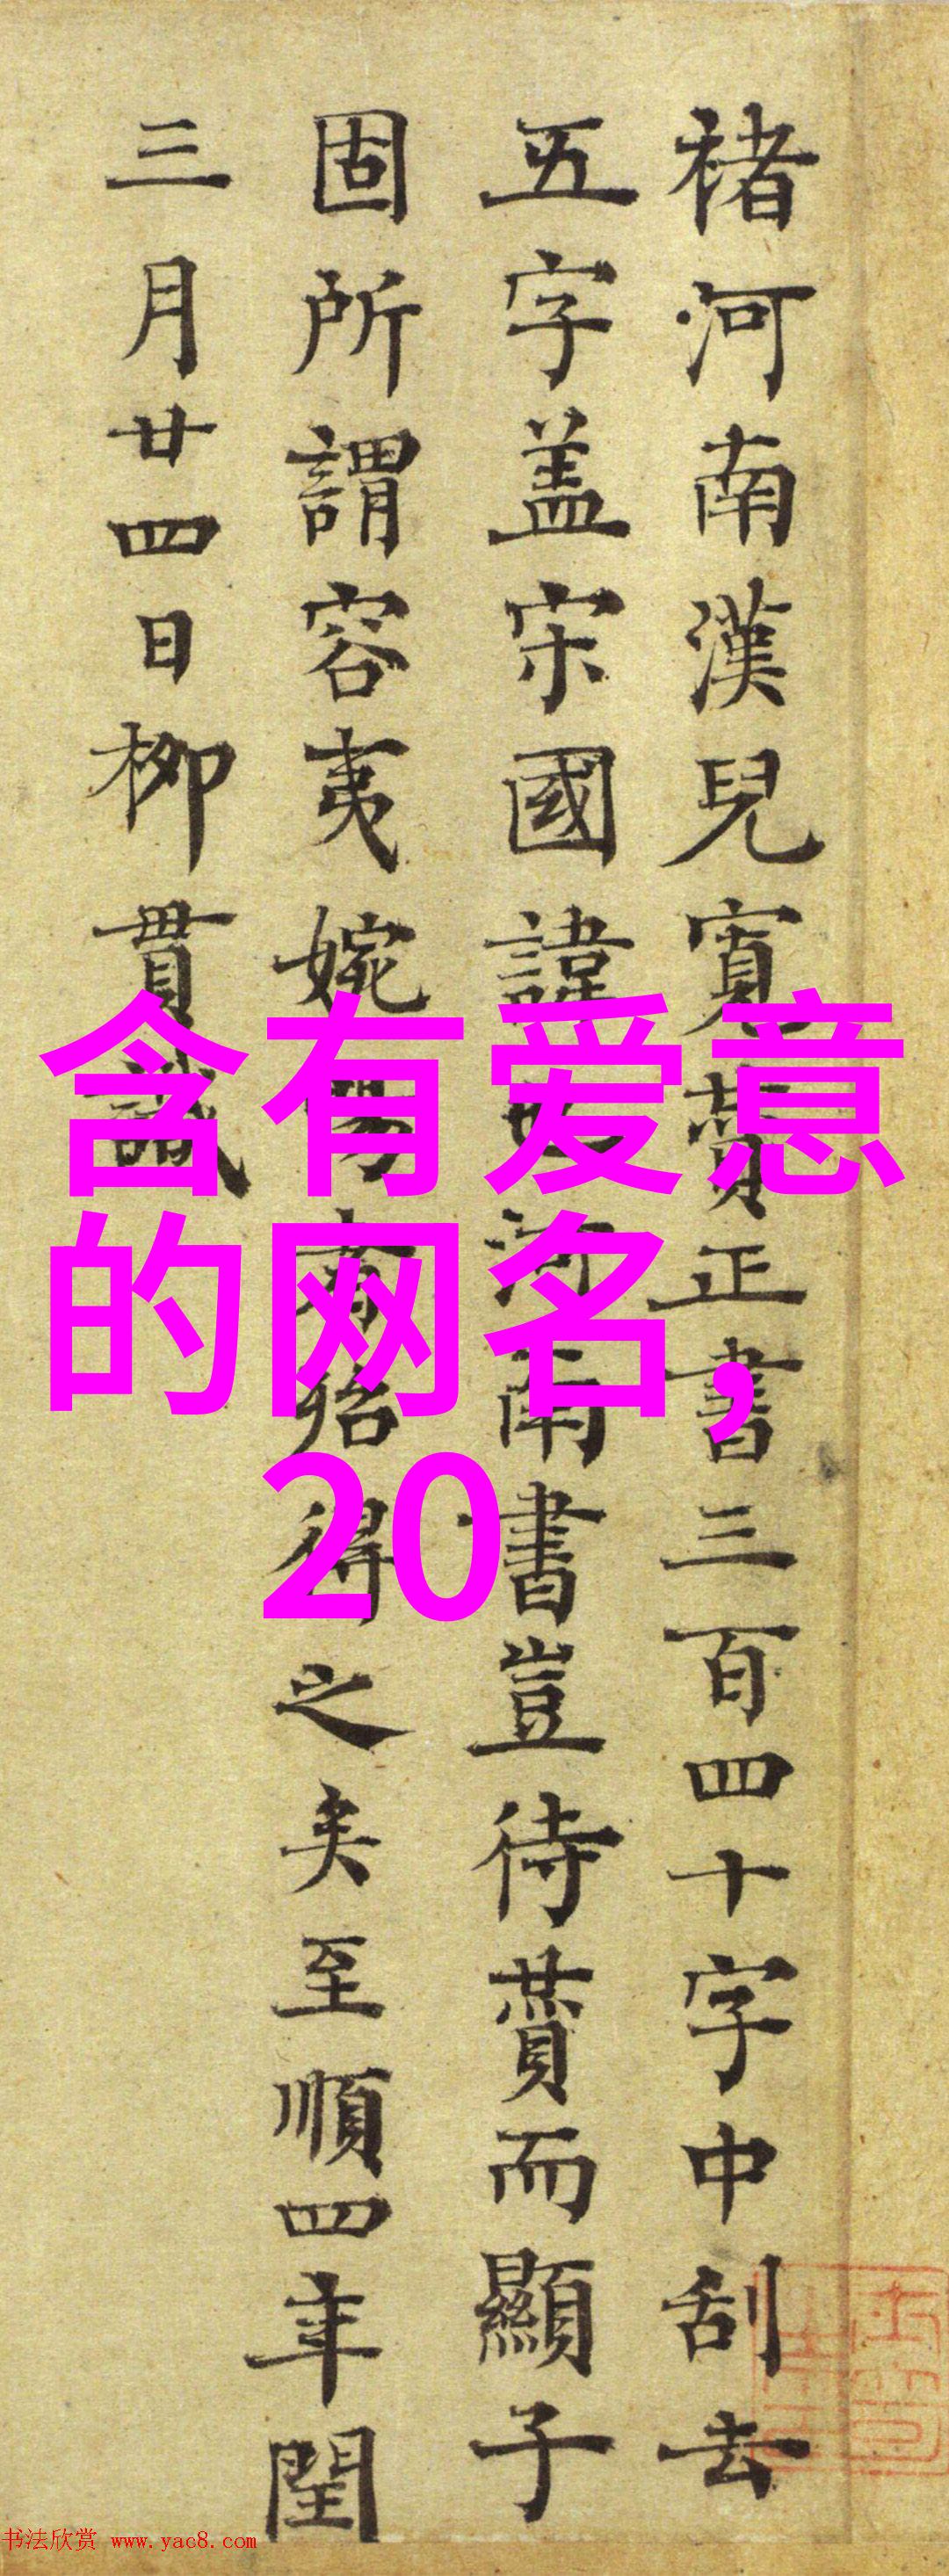 褚河南漢兒寬贊正書三百四十字中刮去
五字盖宋國諱也河南書豈待贊而顯子
固所謂容夷婉暢者殆得之矣至順四年閏
三月廿四日柳貫識
含有爱意
的网名,
20
书法欣赏 www.yac8.com